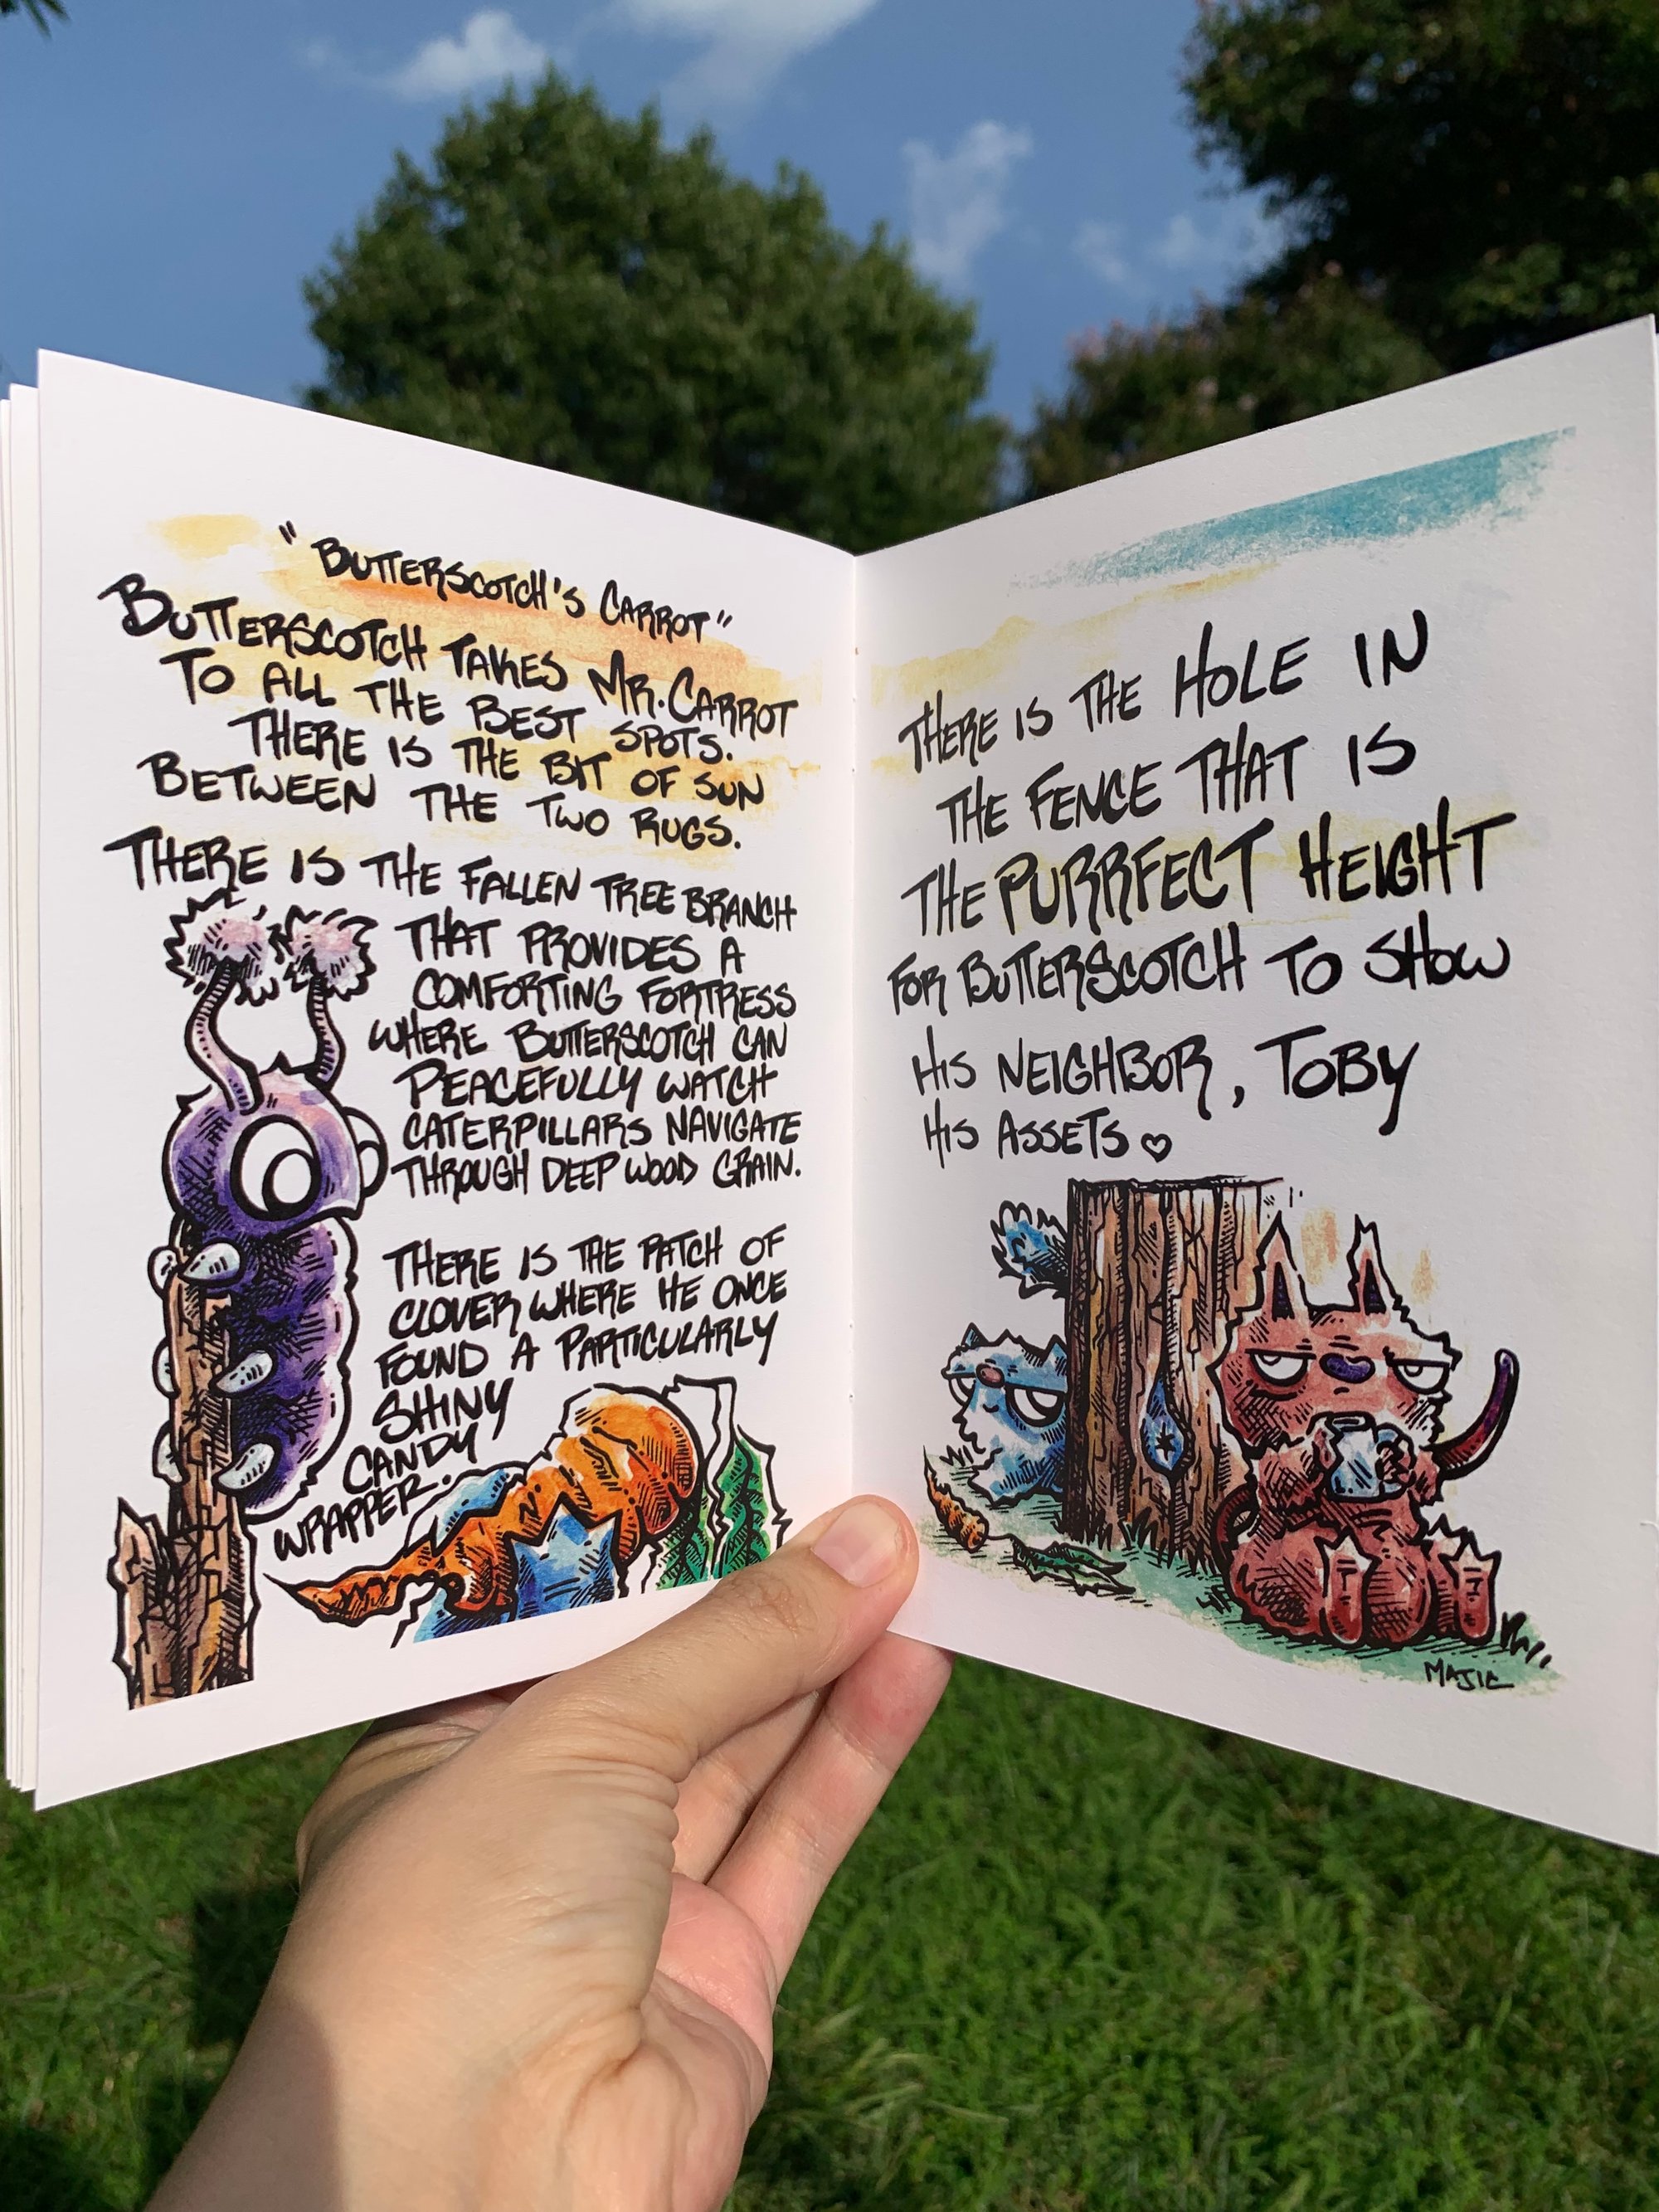 "BUTTERSCOTCH'S CARROT"
BUTTERSCOTCH TAKES MR. CARROT
TO ALL THE BEST SPOTS.
THERE IS THE BIT OF SUN
BETWEEN THE TWO RUGS.
THERE IS THE FALLEN TREE BRANCH
THAT PROVIDES A
COMFORTING FORTRESS
WHERE BUTTERSCOTCH CAN
PEACEFULLY WATCH
CATERPILLARS NAVIGATE
THROUGH DEEP WOOD GRAIN.
THERE IS THE PATCH OF
CLOVER WHERE HE ONCE
FOUND A PARTICULARLY
SHINY
CANDY
WRAPPER.
THERE IS THE HOLE IN
THE FENCE THAT IS
THE PURRFECT HEIGHT
FOR BUTTERSCOTCH TO SHOW
HIS NEIGHBOR, TOBY
HIS ASSETS ♡
MAJIC